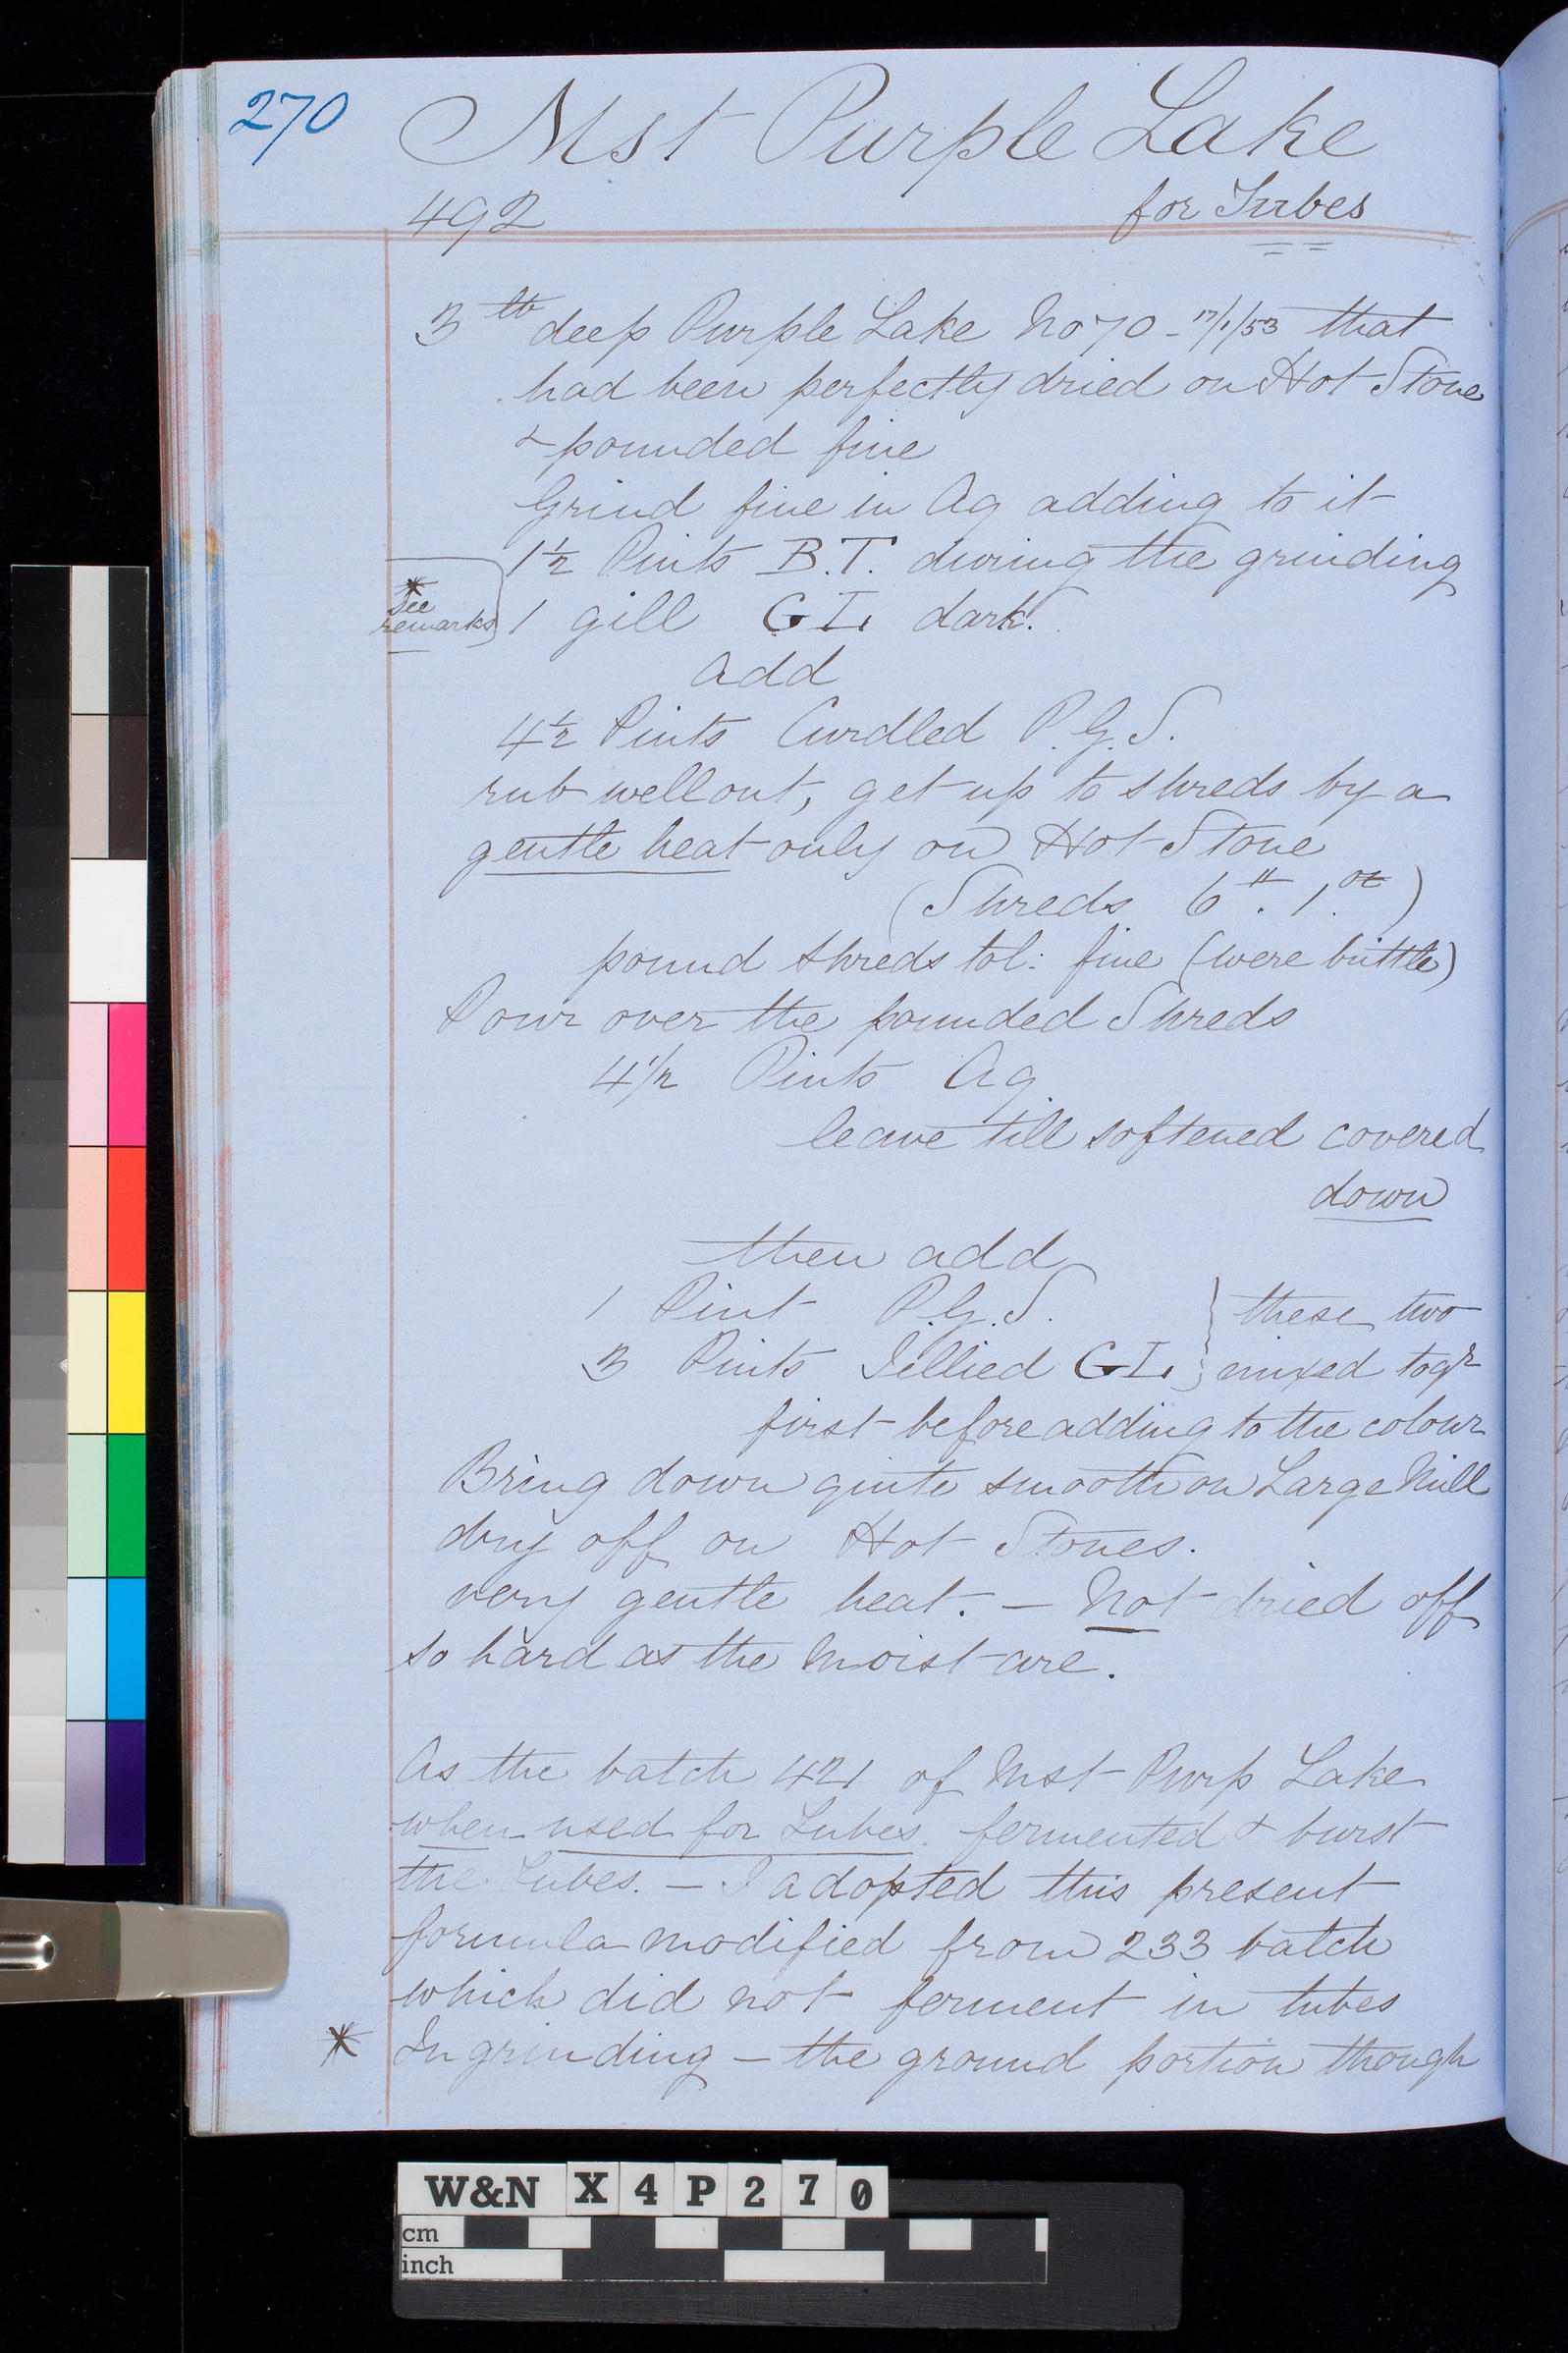 270
Mst Purple Lake
492
for Tubes
3 lb deep Purple Lake No 70 - 17/1/53 that
had been perfectly dried on Hot Stone
& pounded fine
Grind fine in Aq adding to it
1½ Pints B.T. during the grinding
* See
remarks
1 gill GL dark.
add
4½ Pints Curdled P.G.S.
rub well out, get up to shreds by a
gentle heat only on Hot Stone
(Shreds 6 lb. 1. oz)
pound shreds tol: fine (were brittle)
Pour over the pounded Shreds
4½ Pints Aq
leave till softened covered
down
then add
1 Pint P.G.S. } these two
3 Pints Jellied GL } mixed togr
first before adding to the colour
Bring down quite smooth on Large Mill
dry off on Hot Stones.
very gentle heat. — Not dried off
so hard as the Moist are.
As the batch 421 of Mst Purp Lake
when used for Tubes. fermented & burst
the Tubes. — I adopted this present
formula modified from 233 batch
which did not ferment in tubes
* In grinding — the ground portion though
W&N X4P270
cm
inch